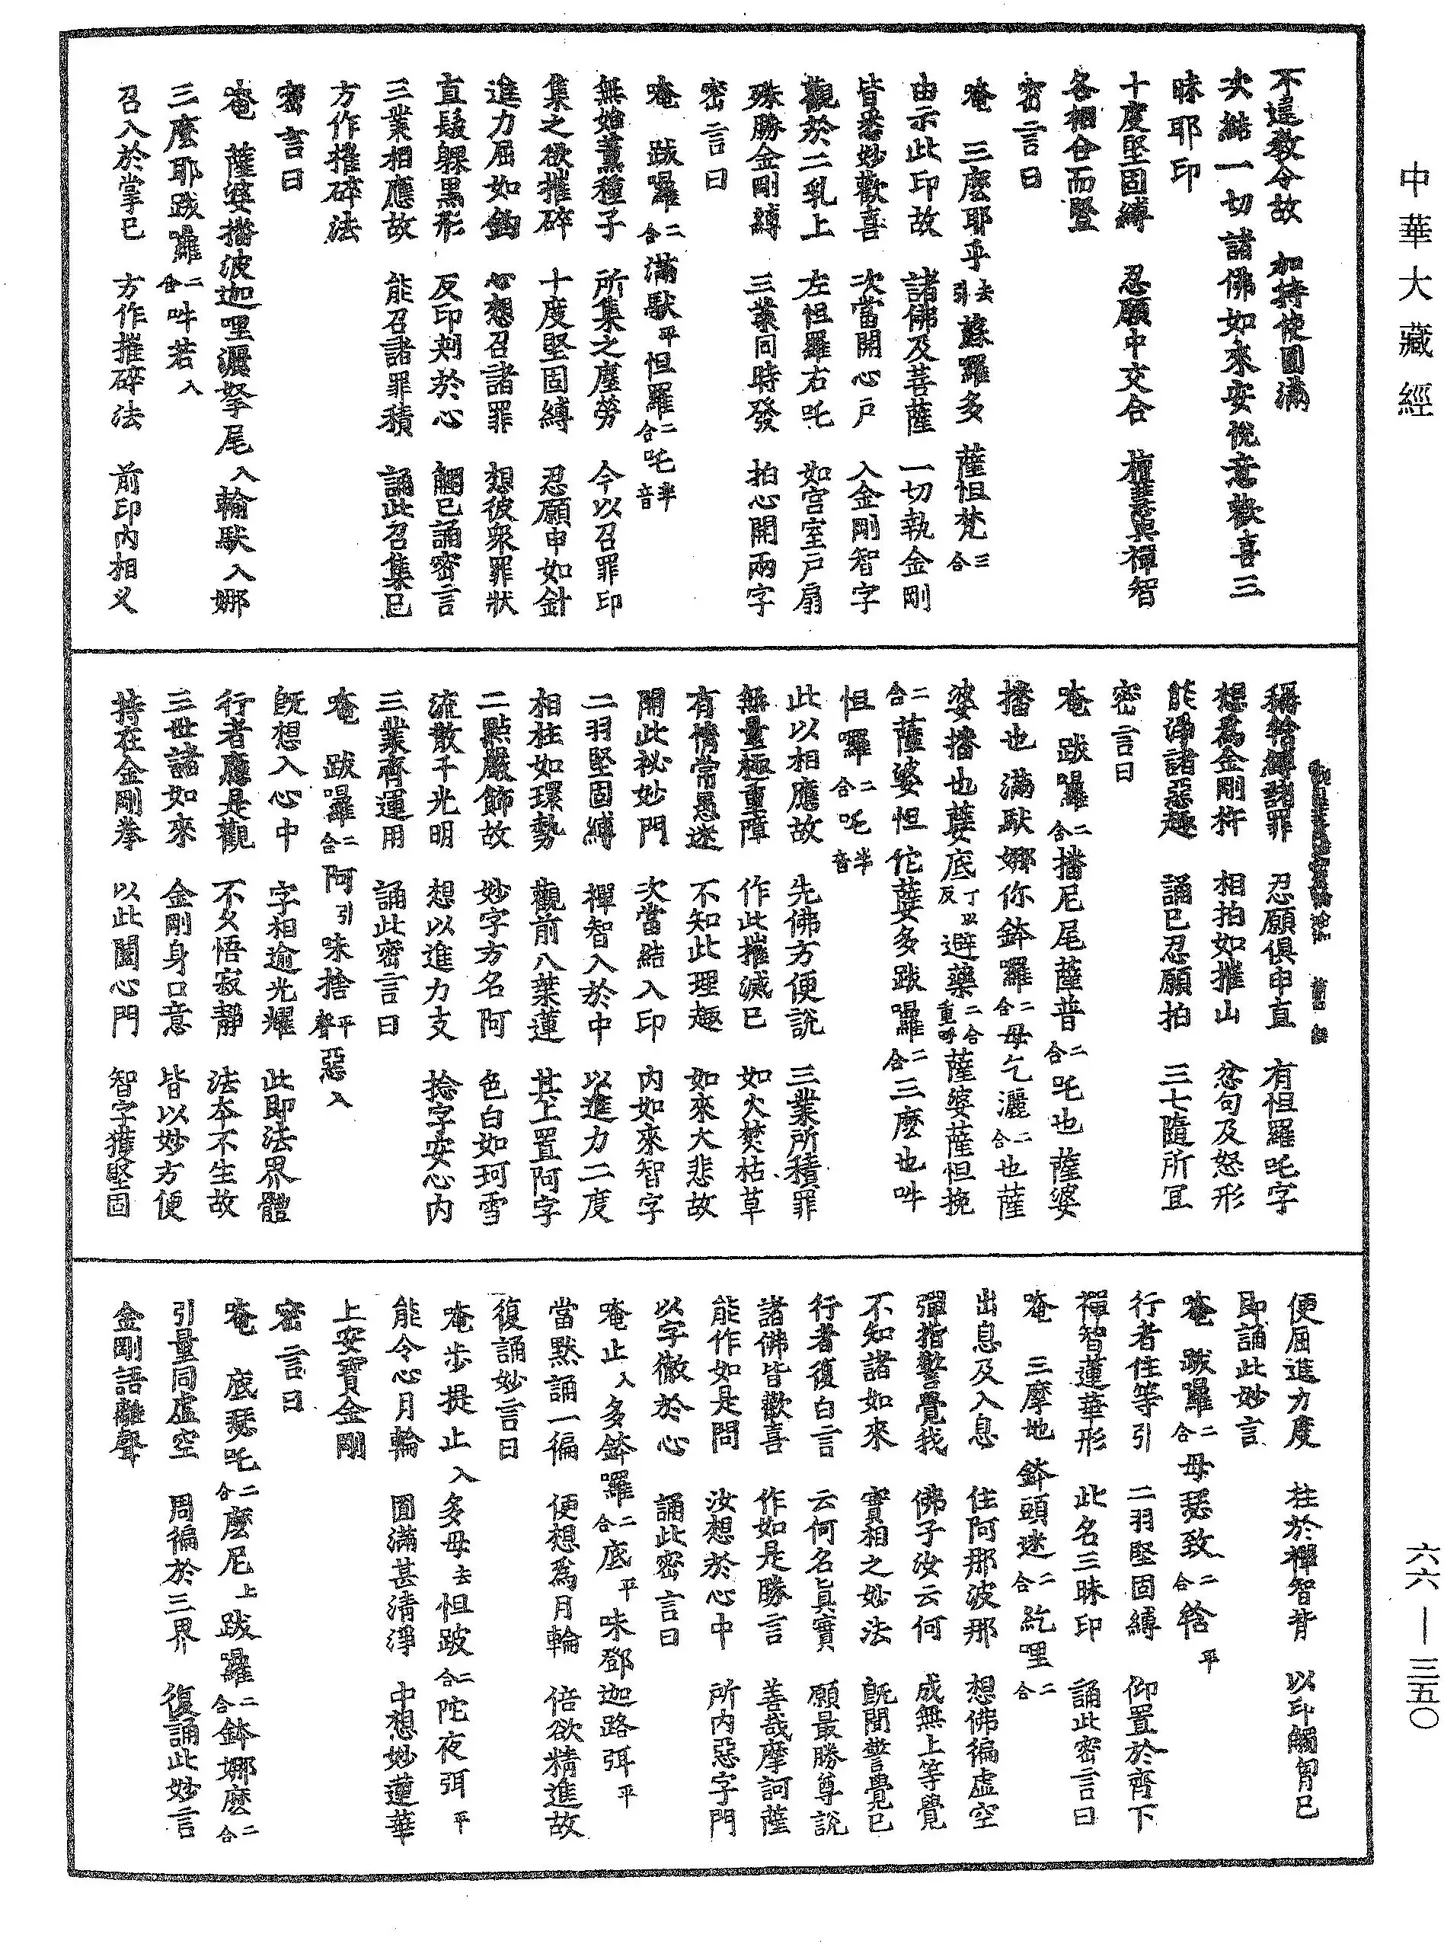 中華大藏經
不違教令故　加持使圓滿
次結一切諸佛如來安悅意歡喜三
昧耶印
十度堅固縛　忍願中交合　檀慧與禪智
各相合而豎
密言曰
唵　三麽耶乎引去蘇羅多　薩怛梵三合
由示此印故　諸佛及菩薩　一切執金剛
皆悉妙歡喜　次當開心戶　入金剛智字
觀於二乳上　左怛羅右吒　如宮室戶扇
殊勝金剛縛　三業同時發　拍心開兩字
密言曰
唵　跋囉二合滿馱平怛羅二合吒半音
無始薰種子　所集之塵勞　今以召罪印
集之欲摧碎　十度堅固縛　忍願申如針
進力屈如鉤　心想召諸罪　想彼衆罪狀
直髮躶黑形　反印刾於心　觸已誦密言
三業相應故　能召諸罪積　誦此召集已
方作摧碎法
密言曰
唵　薩婆播波迦哩灑拏尾入輸馱入娜
三麽耶跋囉二合吽若入
召入於掌已　方作摧碎法　前印內相叉
稱　諸罪　忍願俱申直　有怛羅吒字
想爲金剛杵　相拍如摧山　忿句及怒形
能淨諸惡趣　誦已忍願拍　三七隨所宜
密言曰
唵　跋囉二合播尼尾薩普二合吒也薩婆
播也滿馱娜你鉢羅二合母乞灑二合也薩
婆播也薩婆底丁以反避藥二合重呼薩婆薩怛挽
二合薩婆怛佗薩婆多跋囉二合三麽也吽
怛囉二合吒半音
此以相應故　先佛方便說　三業所積罪
無量極重障　作此摧滅已　如火焚枯草
有情常愚迷　不知此理趣　如來大悲故
開此祕妙門　次當結入印　內如來智字
二羽堅固縛　禪智入於中　以進力二度
相柱如環勢　觀前八葉蓮　其上置阿字
二點嚴飾故　妙字方名阿　色白如珂雪
流散千光明　想以進力支　捻字安心內
三業齊運用　誦此密言曰
唵　跋囉二合阿引味捨平聲惡入
旣想入心中　字相逾光耀　此即法界體
行者應是觀　不久悟寂靜　法本不生故
三世諸如來　金剛身口意　皆以妙方便
持在金剛拳　以此闔心門　智字獲堅固
便屈進力度　柱於禪智背　以印觸胷已
即誦此妙言
唵　跋囉二合母瑟致二合鋡平
行者住等引　二羽堅固縛　仰置於齊下
禪智蓮華形　此名三昧印　誦此密言曰
唵　三摩地鉢頭迷二合紇哩二合
出息及入息　住阿那波那　想佛徧虛空
彈指警覺我　佛子汝云何　成無上等覺
不知諸如來　實相之妙法　旣聞警覺已
行者復白言　云何名眞實　願最勝尊說
諸佛皆歡喜　作如是勝言　善哉摩訶薩
能作如是問　汝想於心中　所內惡字門
以字徹於心　誦此密言曰
唵止入多鉢囉二合底平味鄧迦路弭平
當默誦一徧　便想爲月輪　倍欲精進故
復誦妙言曰
唵步提止入多母去怛跛二合陀夜弭平
能令心月輪　圓滿甚清淨　中想妙蓮華
上安寶金剛
密言曰
唵　底瑟吒二合麽尼上跋羅二合鉢娜麽二合
引量同虛空　周徧於三界　復誦此妙言
金剛語離聲
六六—三五〇